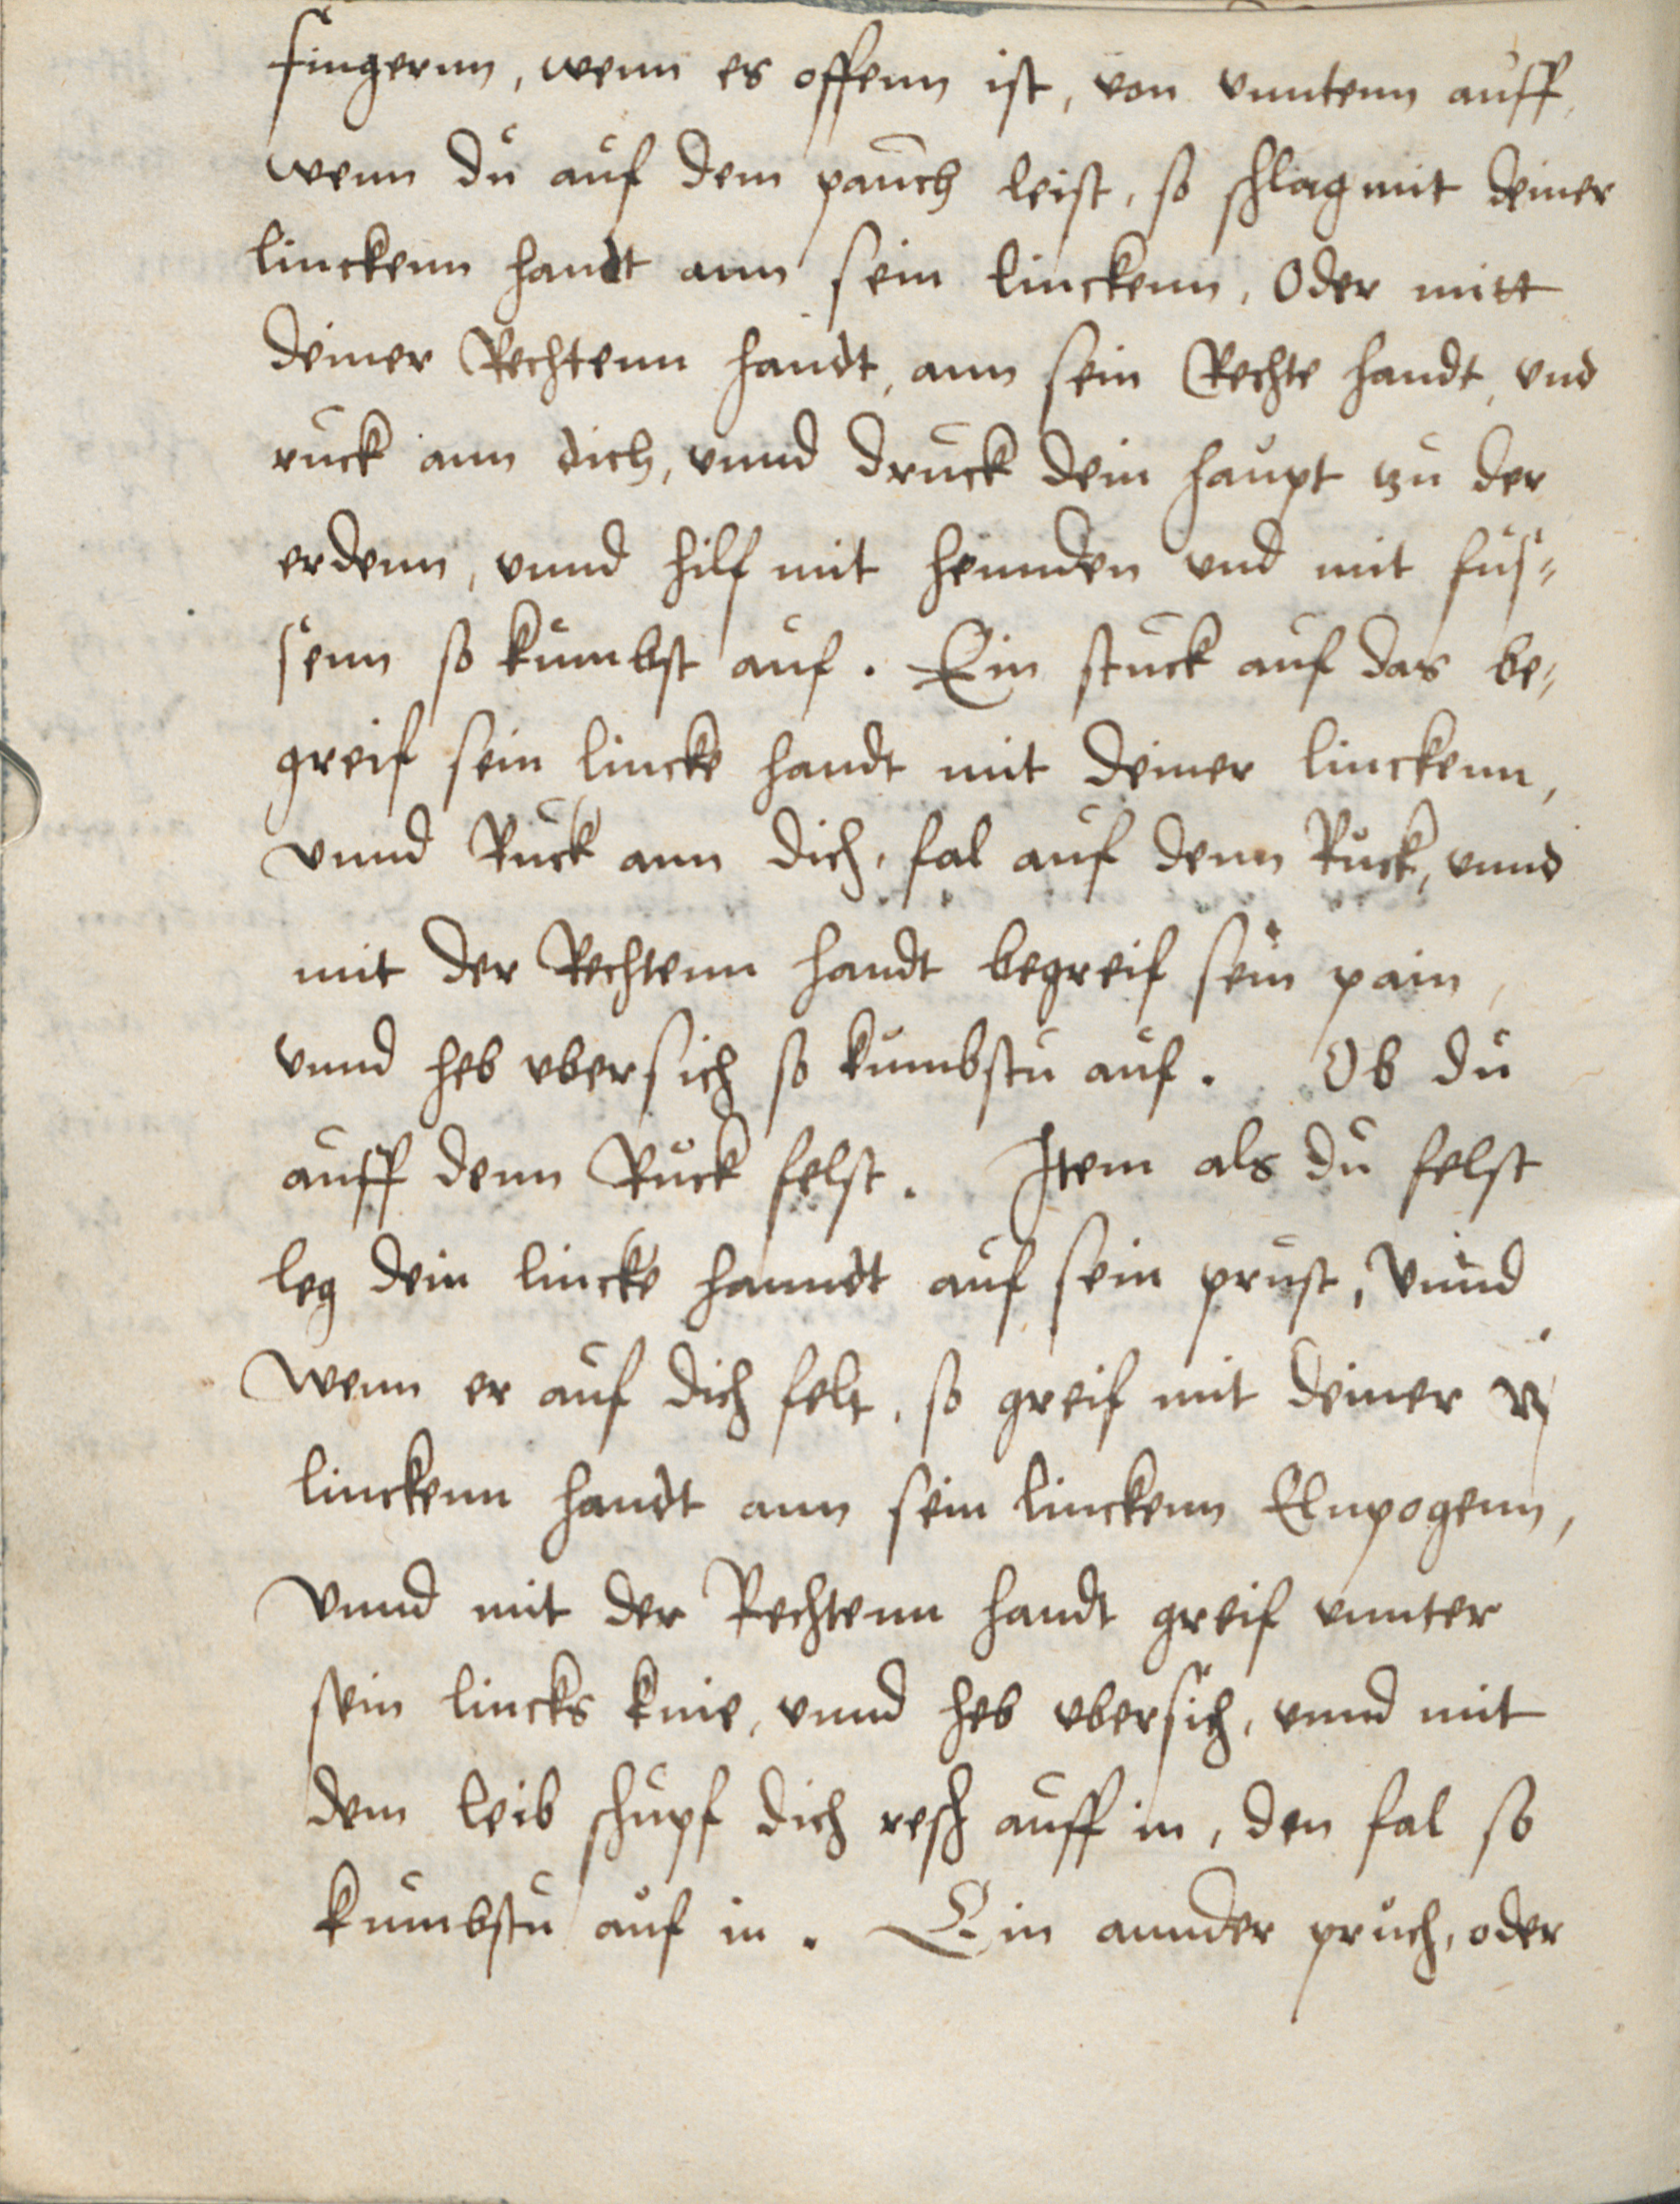 fingernn, wenn es offenn ist, von vnntenn auff,
wenn du auf dem pauch leist, so schlag mit deiner
linckenn handt ann sein linckenn, Oder mitt
deiner Rechtenn handt, ann sein Rechte handt, vnd
ruck ann dich, vnnd druck dein haupt zu der
erdenn, vnnd hilf mit hennden vnd mit füs=
senn so kumbst auf. Ein stuck auf das be=
greif sein lincke handt mit deiner linckenn,
vnnd Ruck ann dich, fal auf denn Ruck, vnnd
mit der Rechtenn handt begreif sein pain,
vnnd heb vbersich so kumbstu auf. Ob du
auff denn Ruck felst. Item als du felst
leg dein lincke hanndt auf sein prust, Vnnd
wenn er auf dich felt, so greif mit deiner
linckenn handt ann sein linckenn Elnpogenn,
Vnnd mit der Rechtenn handt greif vnnter
sein lincks knie, vnnd heb vbersich, vnnd mit
dem leib schupf dich resch auff in, den fal so
kumbstu auf in. Ein annder pruch, oder